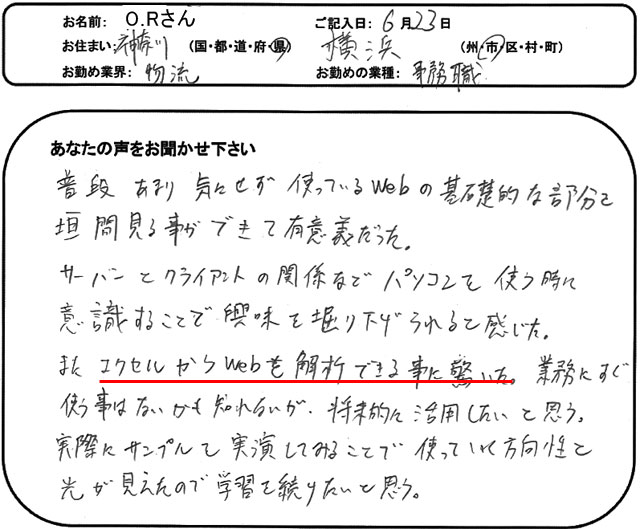 お名前: O.Rさん ご記入日: 6月23日
お住まい: 神奈川 (国・都・道・府・県) 横浜 (州・市・区・村・町)
お勤め業界: 物流 お勤めの業種: 事務職
あなたの声をお聞かせ下さい
普段 あまり 気にせず 使っているWebの基礎的な部分を
垣間見る事ができて有意義だった。
サーバーとクライアントの関係などパソコンを使う時に
意識することで興味を掘り下げられると感じた。
また エクセルからWebを解析できる事に驚いた。業務にすぐ
使う事はないかも知れないが、将来的に活用したいと思う。
実際にサンプルを実演してみることで使っていく方向性と
光が見えたので学習を続けたいと思う。